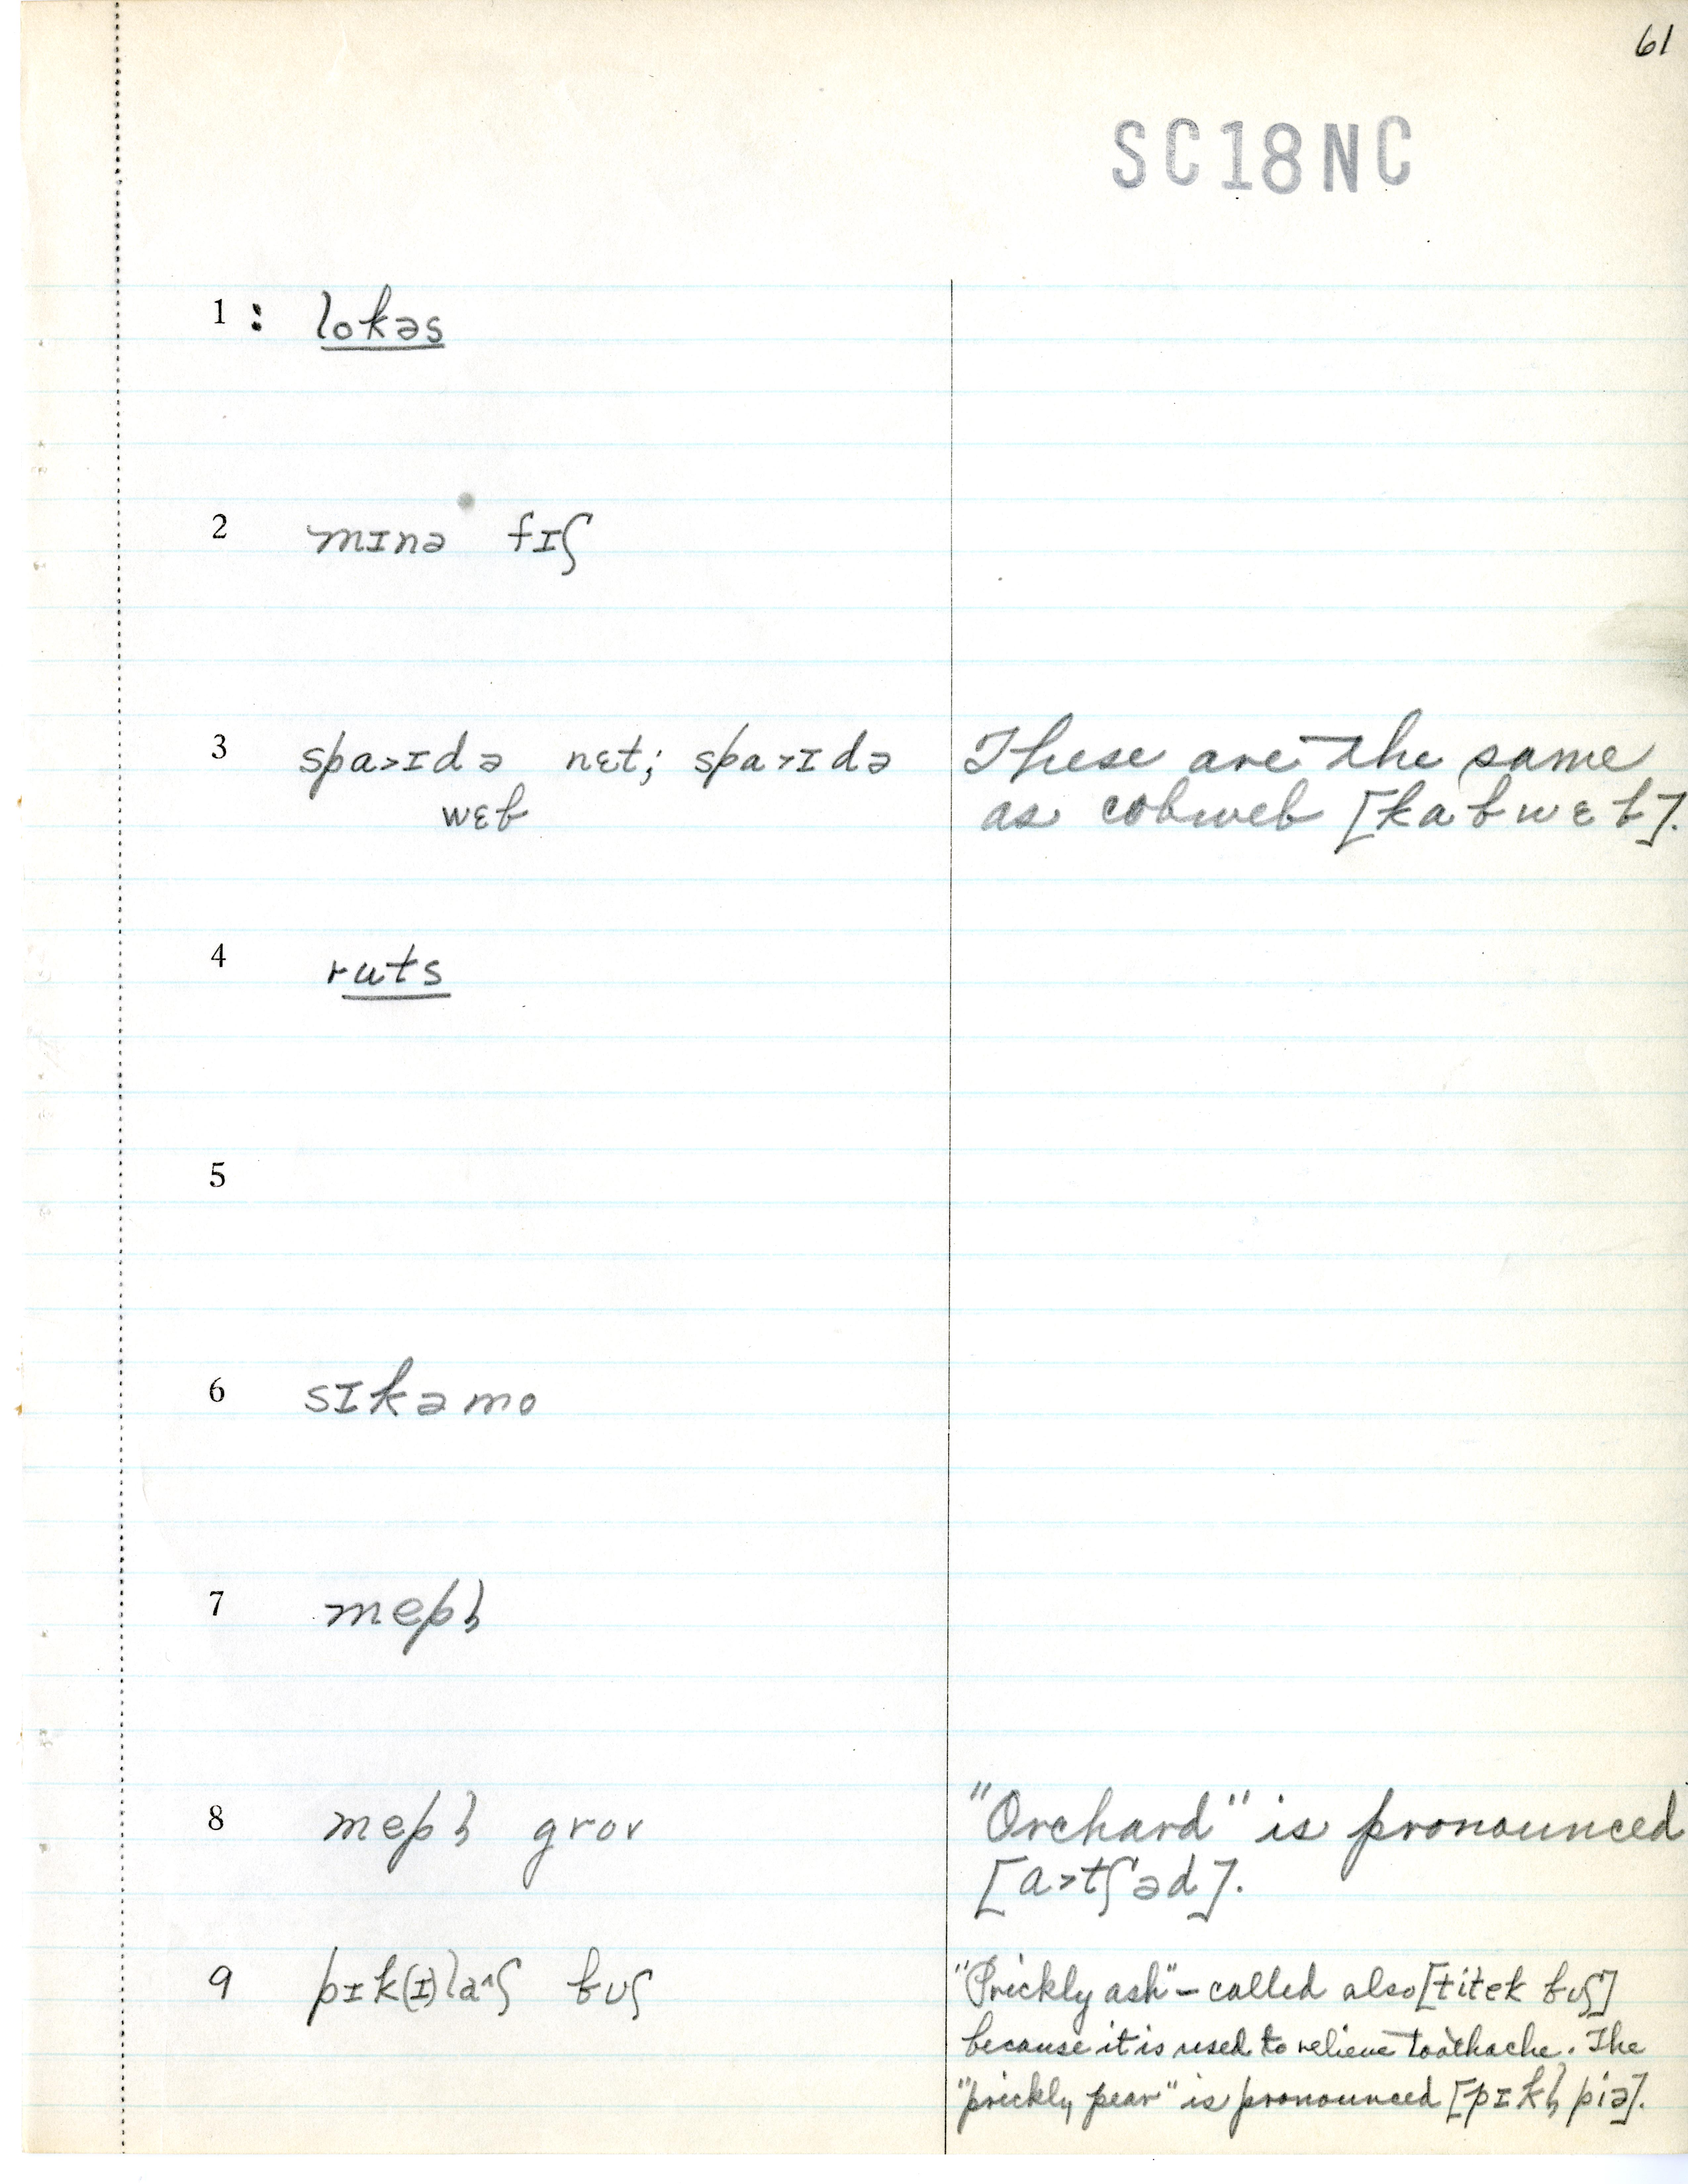 61
SC18NC
1 : lokəs
2 mɪnə fɪʃ
3 spa>ɪdə nɛt; spa>ɪdə These are the same
wɛb as cobweb [kabwɛb].
4 ruts
5
6 sɪkəmo
7 mepl̩
8 mepl̩ grov "Orchard" is pronounced
[a>tʃəd].
9 pɪk(ɪ)la^ʃ bʊʃ "Prickly ash" – called also [titek bʊʃ]
because it is used to relieve toothache. The
"prickly pear" is pronounced [pɪkl̩ piə].